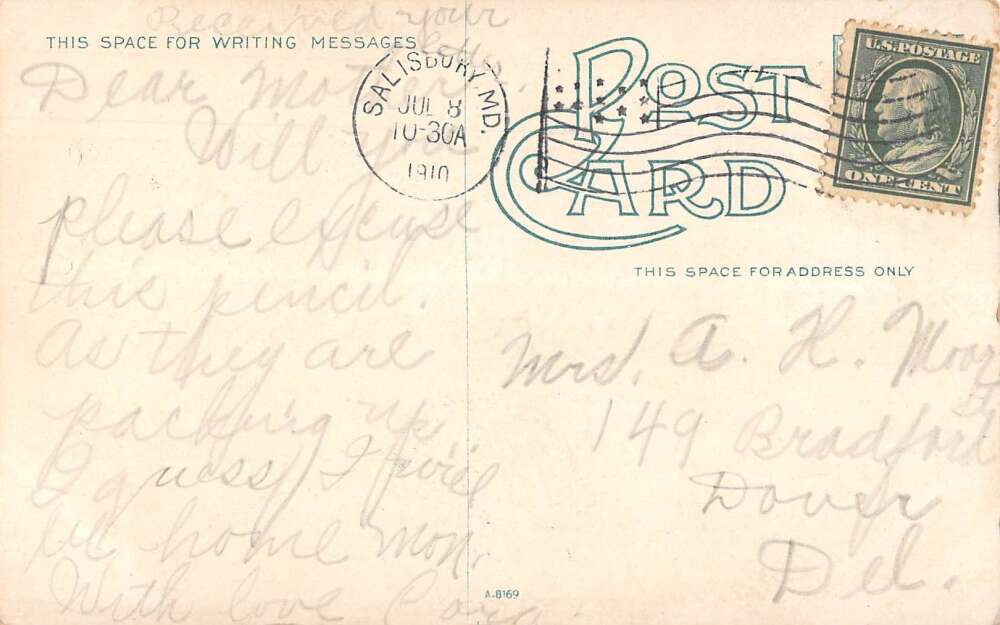 Received your
THIS SPACE FOR WRITING MESSAGES
Dear Mother.
Will you
please excuse
this pencil.
As they are
packing up,
I guess, I will
be home Mon.
With love Cora
SALISBURY, MD.
JUL 8
10-30A
1910
POST
CARD
U.S. POSTAGE
ONE CENT
THIS SPACE FOR ADDRESS ONLY
Mrs. A. H. Moore
149 Bradford
St
Dover
Del.
A-8169